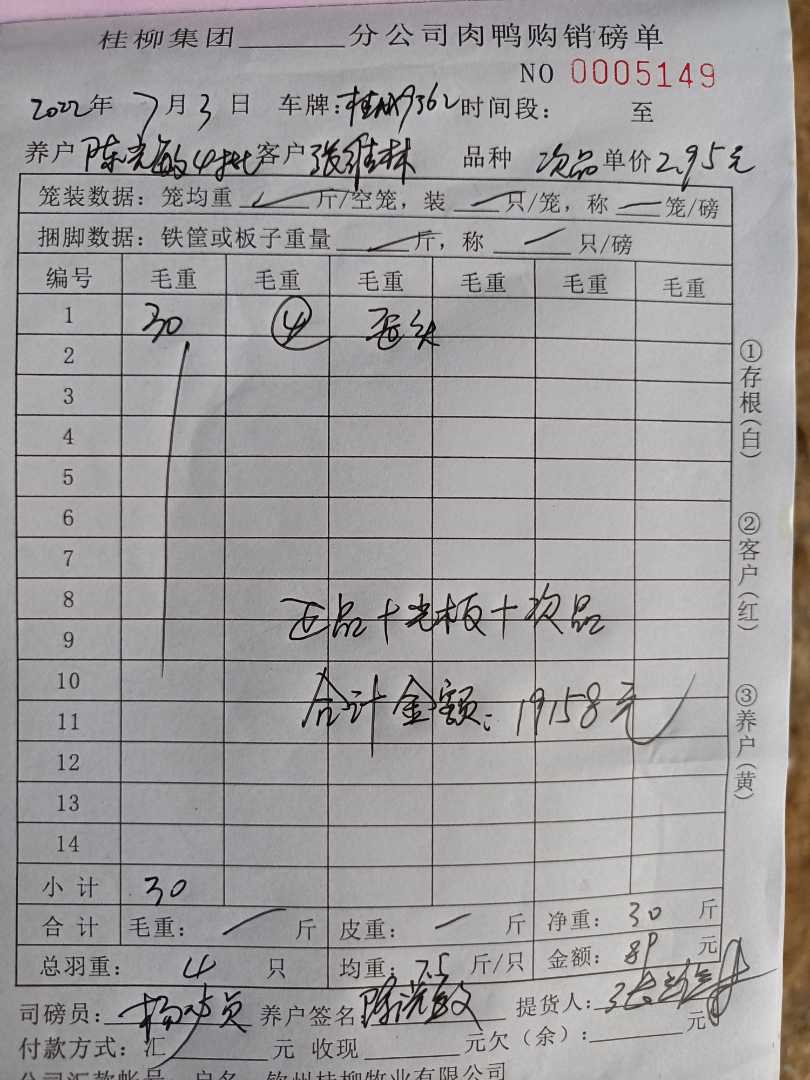 桂柳集团______分公司肉鸭购销磅单
NO 0005149
2022年 7月3日 车牌: 9362 时间段: 至
养户 陈光敏4批 客户 张维林 品种 次品 单价 2.95元
笼装数据: 笼均重 / 斤/空笼, 装 / 只/笼, 称 / 笼/磅
捆脚数据: 铁筐或板子重量 / 斤, 称 / 只/磅
编号 毛重 毛重 毛重 毛重 毛重 毛重
1 30 ④
2
3
4
5
6
7
8
正品+光板+次品
9
10
合计金额: 19158元
11
12
13
14
小计 30
合计 毛重: / 斤 皮重: / 斤 净重: 30 斤
总羽重: 4 只 均重: 7.5 斤/只 金额: 89 元
司磅员: 养户签名 陈光敏 提货人:
付款方式: 汇______元 收现______元欠(余):______元
公司汇款帐号 户名 钦州桂柳牧业有限公司
①存根(白)
②客户(红)
③养户(黄)